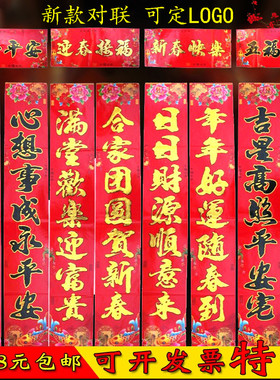 新款对联 可定LOGO
平安
迎春接福
新春快樂
五福
心想事成永平安
滿堂歡樂迎富貴
合家团圆賀新春
日日財源順意来
年年好運隨春到
吉星高照平安宅
8元包邮 可开发票 特